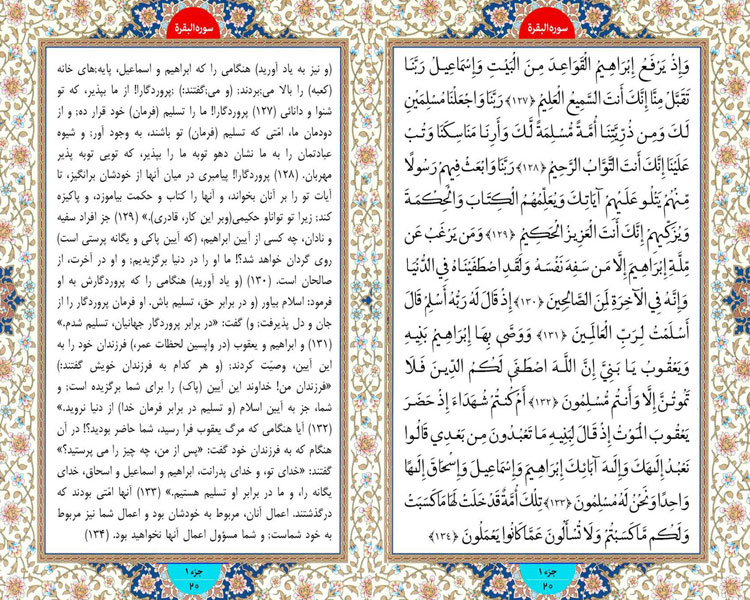 سوره‌البقرة
وَإِذْ يَرْفَعُ إِبْرَاهِيمُ الْقَوَاعِدَ مِنَ الْبَيْتِ وَإِسْمَاعِيلُ رَبَّنَا
تَقَبَّلْ مِنَّا إِنَّكَ أَنتَ السَّمِيعُ الْعَلِيمُ ﴿١٢٧﴾ رَبَّنَا وَاجْعَلْنَا مُسْلِمَيْنِ
لَكَ وَمِن ذُرِّيَّتِنَا أُمَّةً مُّسْلِمَةً لَّكَ وَأَرِنَا مَنَاسِكَنَا وَتُبْ
عَلَيْنَا إِنَّكَ أَنتَ التَّوَّابُ الرَّحِيمُ ﴿١٢٨﴾ رَبَّنَا وَابْعَثْ فِيهِمْ رَسُولًا
مِّنْهُمْ يَتْلُو عَلَيْهِمْ آيَاتِكَ وَيُعَلِّمُهُمُ الْكِتَابَ وَالْحِكْمَةَ
وَيُزَكِّيهِمْ إِنَّكَ أَنتَ الْعَزِيزُ الْحَكِيمُ ﴿١٢٩﴾ وَمَن يَرْغَبُ عَن
مِّلَّةِ إِبْرَاهِيمَ إِلَّا مَن سَفِهَ نَفْسَهُ وَلَقَدِ اصْطَفَيْنَاهُ فِي الدُّنْيَا
وَإِنَّهُ فِي الْآخِرَةِ لَمِنَ الصَّالِحِينَ ﴿١٣٠﴾ إِذْ قَالَ لَهُ رَبُّهُ أَسْلِمْ قَالَ
أَسْلَمْتُ لِرَبِّ الْعَالَمِينَ ﴿١٣١﴾ وَوَصَّى بِهَا إِبْرَاهِيمُ بَنِيهِ
وَيَعْقُوبُ يَا بَنِيَّ إِنَّ اللَّهَ اصْطَفَى لَكُمُ الدِّينَ فَلَا
تَمُوتُنَّ إِلَّا وَأَنتُم مُّسْلِمُونَ ﴿١٣٢﴾ أَمْ كُنتُمْ شُهَدَاءَ إِذْ حَضَرَ
يَعْقُوبَ الْمَوْتُ إِذْ قَالَ لِبَنِيهِ مَا تَعْبُدُونَ مِن بَعْدِي قَالُوا
نَعْبُدُ إِلَهَكَ وَإِلَهَ آبَائِكَ إِبْرَاهِيمَ وَإِسْمَاعِيلَ وَإِسْحَاقَ إِلَهًا
وَاحِدًا وَنَحْنُ لَهُ مُسْلِمُونَ ﴿١٣٣﴾ تِلْكَ أُمَّةٌ قَدْ خَلَتْ لَهَا مَا كَسَبَتْ
وَلَكُم مَّا كَسَبْتُمْ وَلَا تُسْأَلُونَ عَمَّا كَانُوا يَعْمَلُونَ ﴿١٣٤﴾
جزء ۱
۲۰
سوره‌البقرة
(و نیز به یاد آورید) هنگامی را که ابراهیم و اسماعیل، پایه‌‌های خانه
(کعبه) را بالا می‌بردند; (و می‌گفتند:) ;پروردگارا! از ما بپذیر، که تو
شنوا و دانائی (۱۲۷) پروردگارا! ما را تسلیم (فرمان) خود قرار ده; و از
دودمان ما، امّتی که تسلیم (فرمان) تو باشند، به وجود آور; و شیوه
عبادتمان را به ما نشان دهو توبه ما را بپذیر، که تویی توبه پذیر
مهربان. (۱۲۸) پروردگارا! پیامبری در میان آنها از خودشان برانگیز، تا
آیات تو را بر آنان بخواند، و آنها را کتاب و حکمت بیاموزد، و پاکیزه
کند; زیرا تو تواناو حکیمی(وبر این کار، قادری).» (۱۲۹) جز افراد سفیه
و نادان، چه کسی از آیین ابراهیم، (که آیین پاکی و یگانه پرستی است)
روی گردان خواهد شد؟! ما او را در دنیا برگزیدیم; و او در آخرت، از
صالحان است. (۱۳۰) (و یاد آورید) هنگامی را که پروردگارش به او
فرمود: اسلام بیاور (و در برابر حق، تسلیم باش. او فرمان پروردگار را از
جان و دل پذیرفت; و) گفت: «در برابر پروردگار جهانیان، تسلیم شدم.»
(۱۳۱) و ابراهیم و یعقوب (در واپسین لحظات عمر،) فرزندان خود را به
این آیین، وصیّت کردند; (و هر کدام به فرزندان خویش گفتند:)
«فرزندان من! خداوند این آیین (پاک) را برای شما برگزیده است; و
شما، جز به آیین اسلام (و تسلیم در برابر فرمان خدا) از دنیا نروید.»
(۱۳۲) آیا هنگامی که مرگ یعقوب فرا رسید، شما حاضر بودید؟! در آن
هنگام که به فرزندان خود گفت: «پس از من، چه چیز را می پرستید؟»
گفتند: «خدای تو، و خدای پدرانت، ابراهیم و اسماعیل و اسحاق، خدای
یگانه را، و ما در برابر او تسلیم هستیم.» (۱۳۳) آنها امّتی بودند که
درگذشتند. اعمال آنان، مربوط به خودشان بود و اعمال شما نیز مربوط
به خود شماست; و شما مسؤول اعمال آنها نخواهید بود. (۱۳۴)
جزء ۱
۲۰